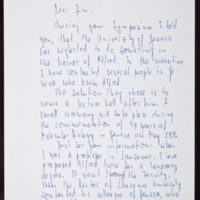 Dear Jim,
during your Symposium I told
you, that the University of Geneva
has neglected to do something in
the honor of Alfred. In the meantime
I have contacted several people in Ge-
neva who knew Alfred.
The solution they chose is to
name a lecture hall after him. A
small ceremony will take place during
the commemoration of 40 years of
Molecular Biology in Geneva on May 29th.
Just for your information: when
I was a professor in Lausanne, I have
proposed Alfred for a honorary
degree. It went through the Faculty,
then the Rector of Lausanne University
contacted his colleague of Geneva, who